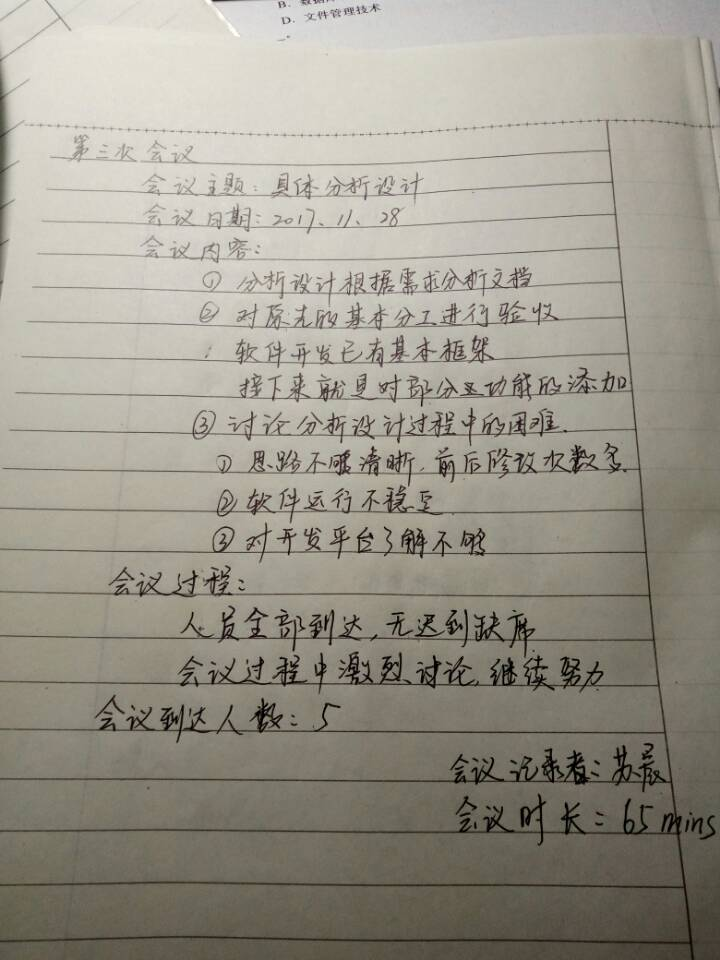 B. 数据
D. 文件管理技术
第三次会议
会议主题: 具体分析设计
会议日期: 2017、11、28
会议内容:
① 分析设计根据需求分析文档
② 对原先的基本分工进行验收
: 软件开发已有基本框架
接下来就是对部分功能的添加
③ 讨论分析设计过程中的困难.
① 思路不够清晰, 前后修改次数多
② 软件运行不稳定
③ 对开发平台了解不够
会议过程:
人员全部到达, 无迟到缺席
会议过程中激烈讨论, 继续努力
会议到达人数: 5
会议记录者: 苏晨
会议时长: 65 mins